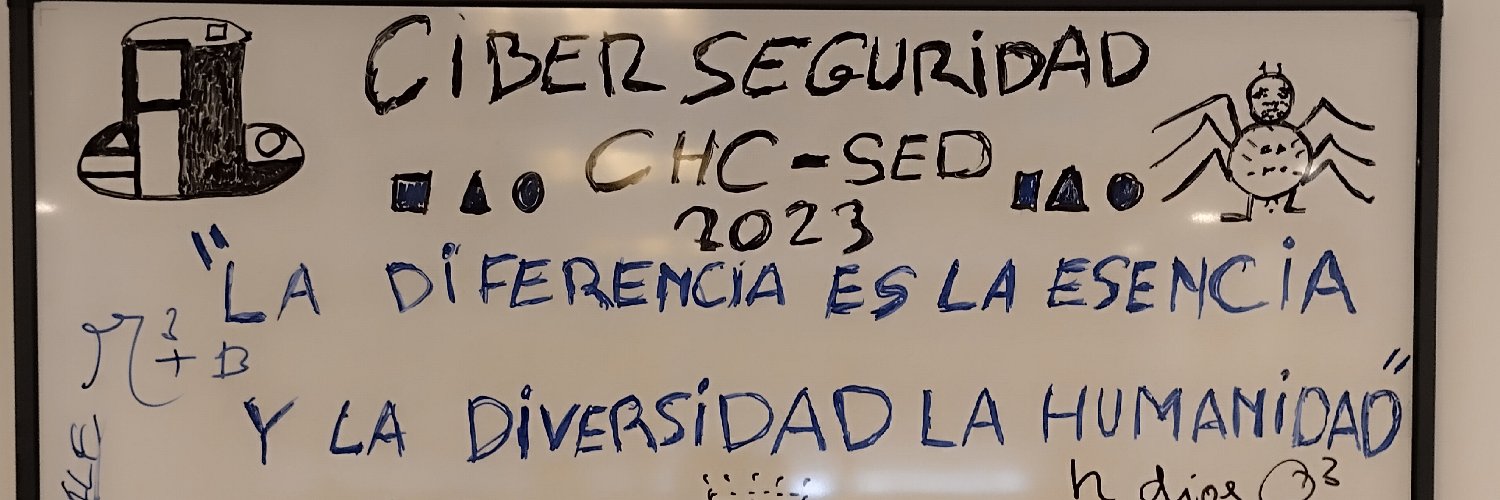 CIBERSEGURIDAD
CHC-SED
2023
"LA DIFERENCIA ES LA ESENCIA
Y LA DIVERSIDAD LA HUMANIDAD"